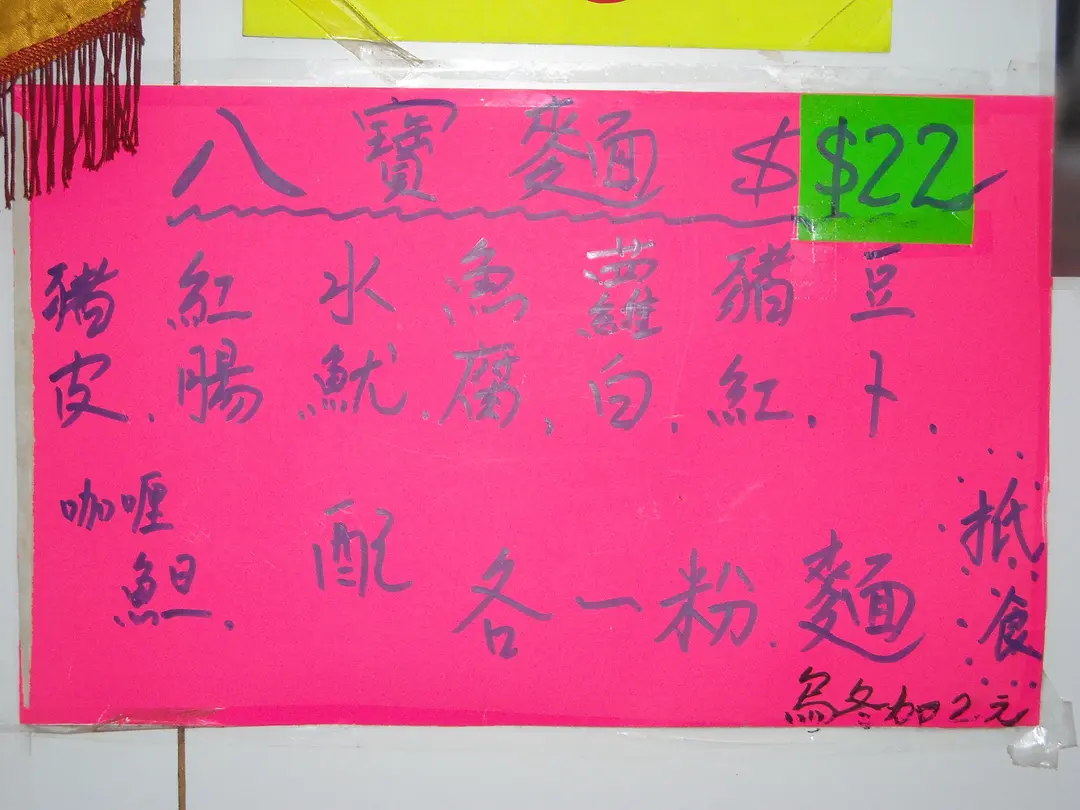 八寶麵 $$22
豬皮.紅腸.水魷.魚腐.蘿白.豬紅.豆卜.
咖喱
魚旦.
配各一粉.麵
抵食
烏冬加2元